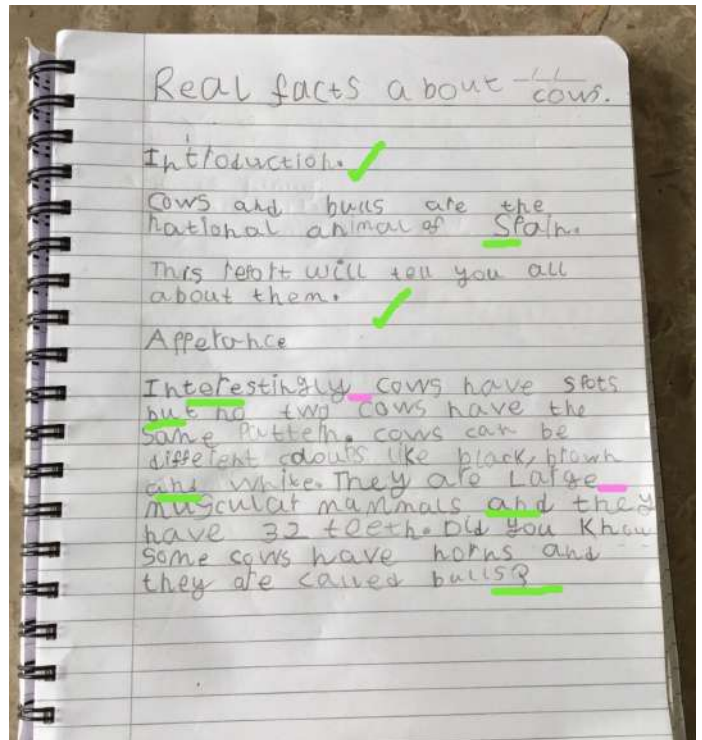 Real facts about cows.
Introduction.
Cows and bulls are the
national animal of Spain.
This report will tell you all
about them.
Apperance
Interestingly cows have spots
but no two cows have the
same pattern. cows can be
different colours like black, brown
and white. They are Large
muscular mammals and they
have 32 teeth. Did you Know
some cows have horns and
they are called bulls?